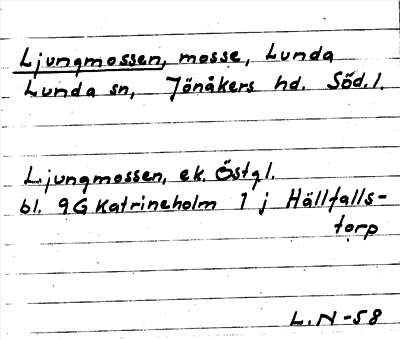 Ljungmossen, mosse, Lunda
Lunda sn, Jönåkers hd. Söd. l.
Ljungmossen, ek. Östgl.
bl. 9G Katrineholm 1 j Hällfalls-
torp
L. N -58